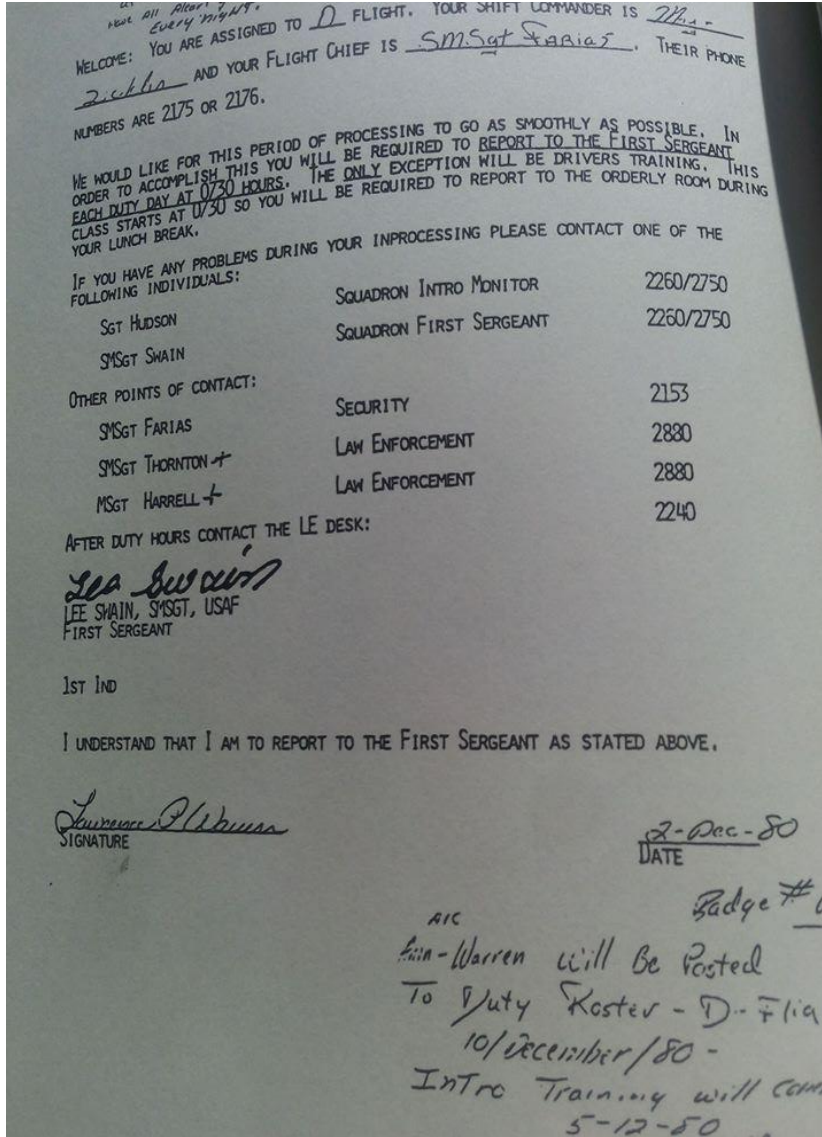 have All
Every night.
WELCOME: YOU ARE ASSIGNED TO D FLIGHT. YOUR SHIFT COMMANDER IS
AND YOUR FLIGHT CHIEF IS SMSgt FARIAS. THEIR PHONE
NUMBERS ARE 2175 OR 2176.
WE WOULD LIKE FOR THIS PERIOD OF PROCESSING TO GO AS SMOOTHLY AS POSSIBLE. IN
ORDER TO ACCOMPLISH THIS YOU WILL BE REQUIRED TO REPORT TO THE FIRST SERGEANT
EACH DUTY DAY AT 0730 HOURS. THE ONLY EXCEPTION WILL BE DRIVERS TRAINING. THIS
CLASS STARTS AT 0730 SO YOU WILL BE REQUIRED TO REPORT TO THE ORDERLY ROOM DURING
YOUR LUNCH BREAK.
IF YOU HAVE ANY PROBLEMS DURING YOUR INPROCESSING PLEASE CONTACT ONE OF THE
FOLLOWING INDIVIDUALS:
SGT HUDSON SQUADRON INTRO MONITOR 2260/2750
SMSGT SWAIN SQUADRON FIRST SERGEANT 2260/2750
OTHER POINTS OF CONTACT:
SMSGT FARIAS SECURITY 2153
SMSGT THORNTON + LAW ENFORCEMENT 2880
MSGT HARRELL + LAW ENFORCEMENT 2880
AFTER DUTY HOURS CONTACT THE LE DESK: 2240
Lee Swain
LEE SWAIN, SMSGT, USAF
FIRST SERGEANT
1ST IND
I UNDERSTAND THAT I AM TO REPORT TO THE FIRST SERGEANT AS STATED ABOVE.
Lawrence P Warren
SIGNATURE
2-Dec-80
DATE
Badge #
A1C
Warren will Be Posted
To Duty Roster - D-Flig
10/December/80 -
InTro Training will com
5-12-80